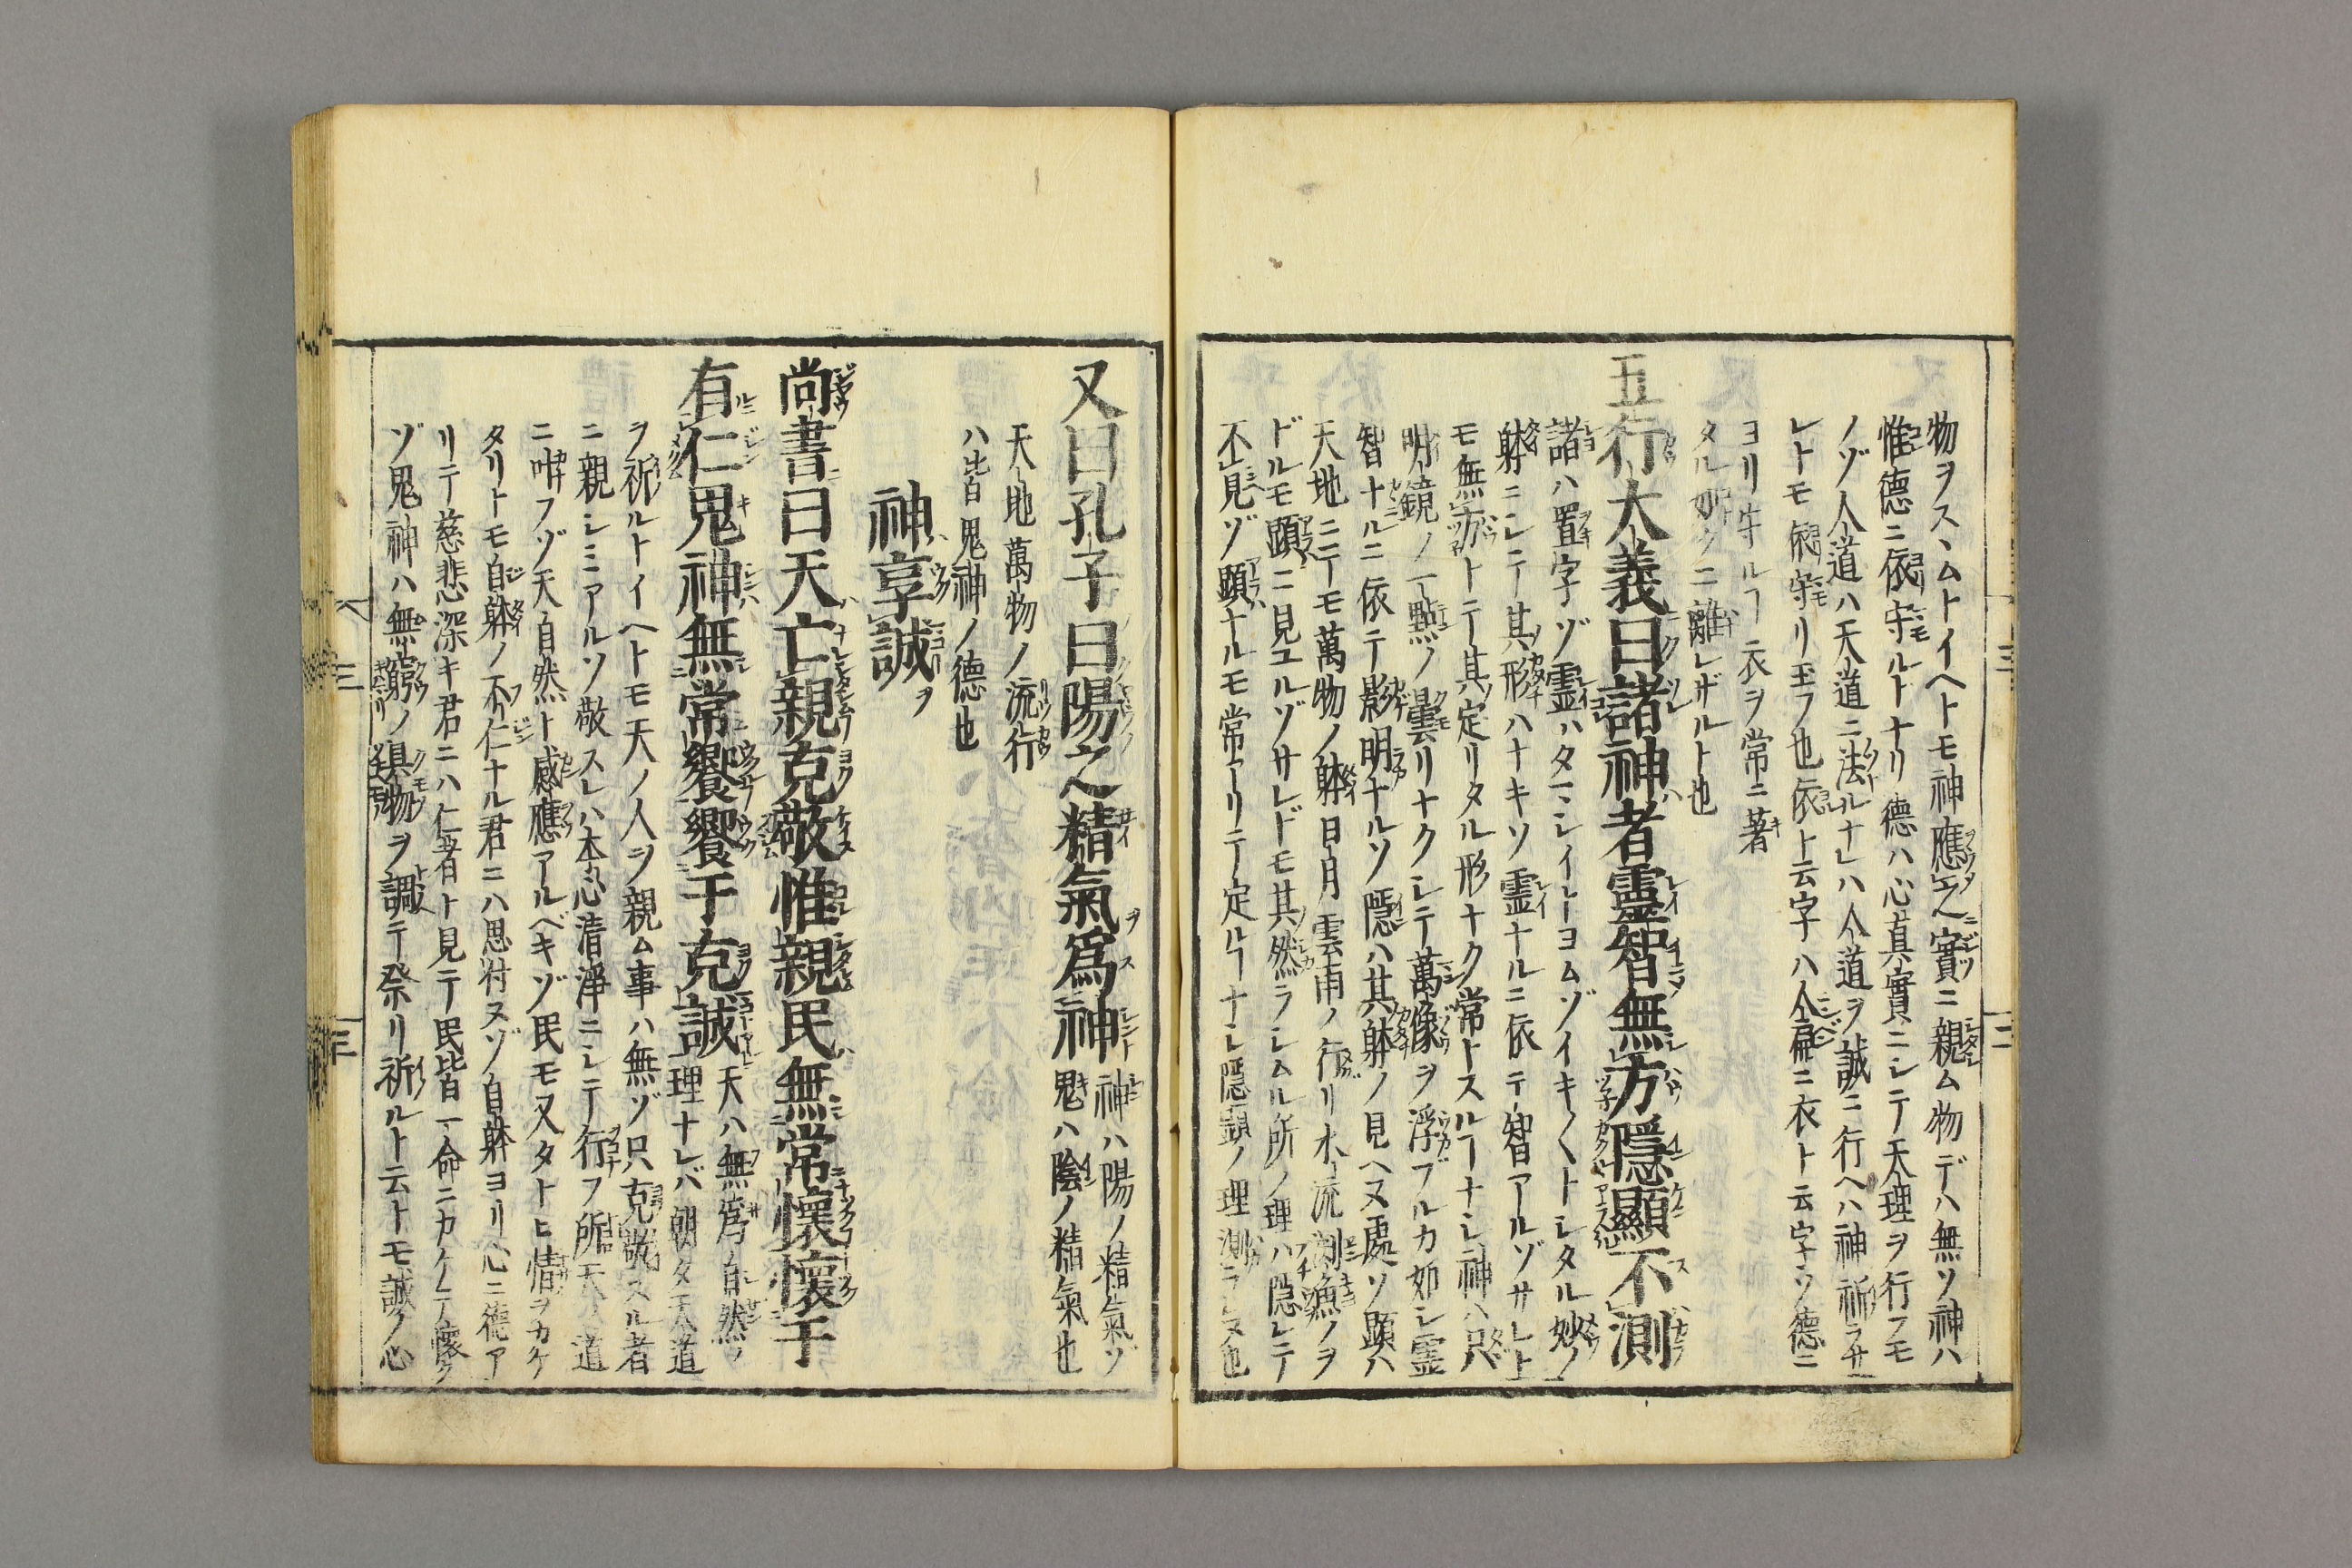 物ヲスヽムトイヘトモ神應之實ニ親ム物デハ無ソ神ハ
惟德ニ依守ルトナリ德ハ心真實ニシテ天理ヲ行フモ
ノゾ人道ハ天道ニ法ルナレハ人道ヲ誠ニ行ヘハ神祈ラサ
レトモ依守リ玉フ也依ト云字ハ人扁ニ衣ト云字ソ德ニ
ヨリ守ルヿ衣ヲ常ニ著
タル如クニ離レザルト也
五行大義曰諸神者靈智無方隱顯不測
諸ハ置字ゾ霊ハタマシイトヨムゾイキ〱トシタル妙ノ
躰ニシテ其形ハナキソ霊ナルニ依テ智アルゾサレト
モ無方トテ其定リタル形ナク常トスルヿナシ神ハ只
明鏡ノ一點ノ曇リナクシテ萬像ヲ浮ブルカ如シ霊
智ナルニ依テ影明ナルソ隱ハ其躰ノ見ヘヌ處ソ顕ハ
天地ニテモ萬物ノ躰日月雲雨ノ行リ水流ノヲ
ドルモ顕ニ見ユルゾサレドモ其然ラシムル所ノ理ハ隱レテ
不見ゾ顕ナルモ常アリテ定ルヿナシ隱顕ノ理測ラレヌ也
又曰孔子曰陽之精氣爲神 神ハ陽ノ精氣ゾ
鬼ハ陰ノ精氣也
天地萬物ノ流行
ハ皆鬼神ノ德也
神享誠ヲ
尚書曰天亡親克敬惟親民無常懷懷于
有仁鬼神無常饗饗于克誠 天ハ無為自然ノ
理ナレバ朝タ天道
ヲ祈ルトイヘトモ天ノ人ヲ親ム事ハ無ゾ只克敬スル者
ニ親シミアルソ敬スレハ本心清淨ニシテ行フ所天ノ道
ニ叶フゾ天自然ト感應アルベキゾ民モ又タトヒ情ヲカケ
タリトモ自躰ノ不仁ナル君ニハ思付ヌゾ自躰ヨリ心ニ德ア
リテ慈悲深キ君ニハ仁者ト見テ民皆一命ニカケテ懷ク
ゾ鬼神ハ無窮ノ供物ヲ調テ祭リ祈ルト云トモ誠ノ心